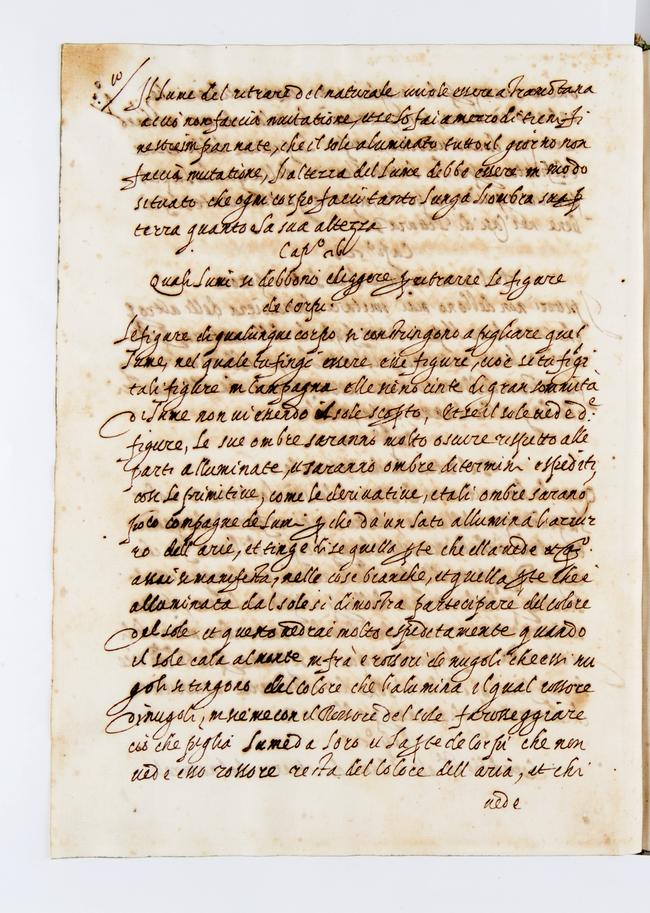 10
Il lume del ritrare del naturale vuole essere a Tramōtana
acciò non faccia mutatione, et se lo fai a mezzo di tien fi
nestre impannate, che il sole aluminato tutto il giorno non
faccia mutatione, l'altezza del lume debbe essere in modo
situato che ogni corpo facci tanto lunga l'ombra sua p
terra quanto è la sua altezza
Cap.º
Quali lumi si debbono eleggere p ritrarre le figure
de corpi
Le figure di qualunque corpo si constringono a pigliare quel
lume, nel quale tu fingi essere che figure, cioè se tu fighi
tali figure in campagna elle sono cinte di gran sommità
di lume non vi essendo il sole scopto, et se il sole vede d.e
figure, le sue ombre saranno molto oscure rispetto alle
parti alluminate, et saranno ombre di termini espediti,
così le primitive, come le derivative, et tali ombre sarano
poco compagne de lumi p che da un lato allumina l'azzur
ro dell'arie, et tinge di se quella pte che ella vede et q.º
assai si manifesta, nelle cose bianche, et quella pte che è
alluminata dal sole si dimostra partecipare del colore
del sole et questo vedrai molto espeditamente quando
il sole cala al monte infrà e rossori de nugoli che essi nu
goli si tingono del colore che l'alumina il qual rossore
di nugoli, insieme con el Rossore del sole fa rosseggiare
ciò che piglia lume da loro et la pte de corpi che non
vede esso rossore resta del coloce dell'aria, et chi
vede